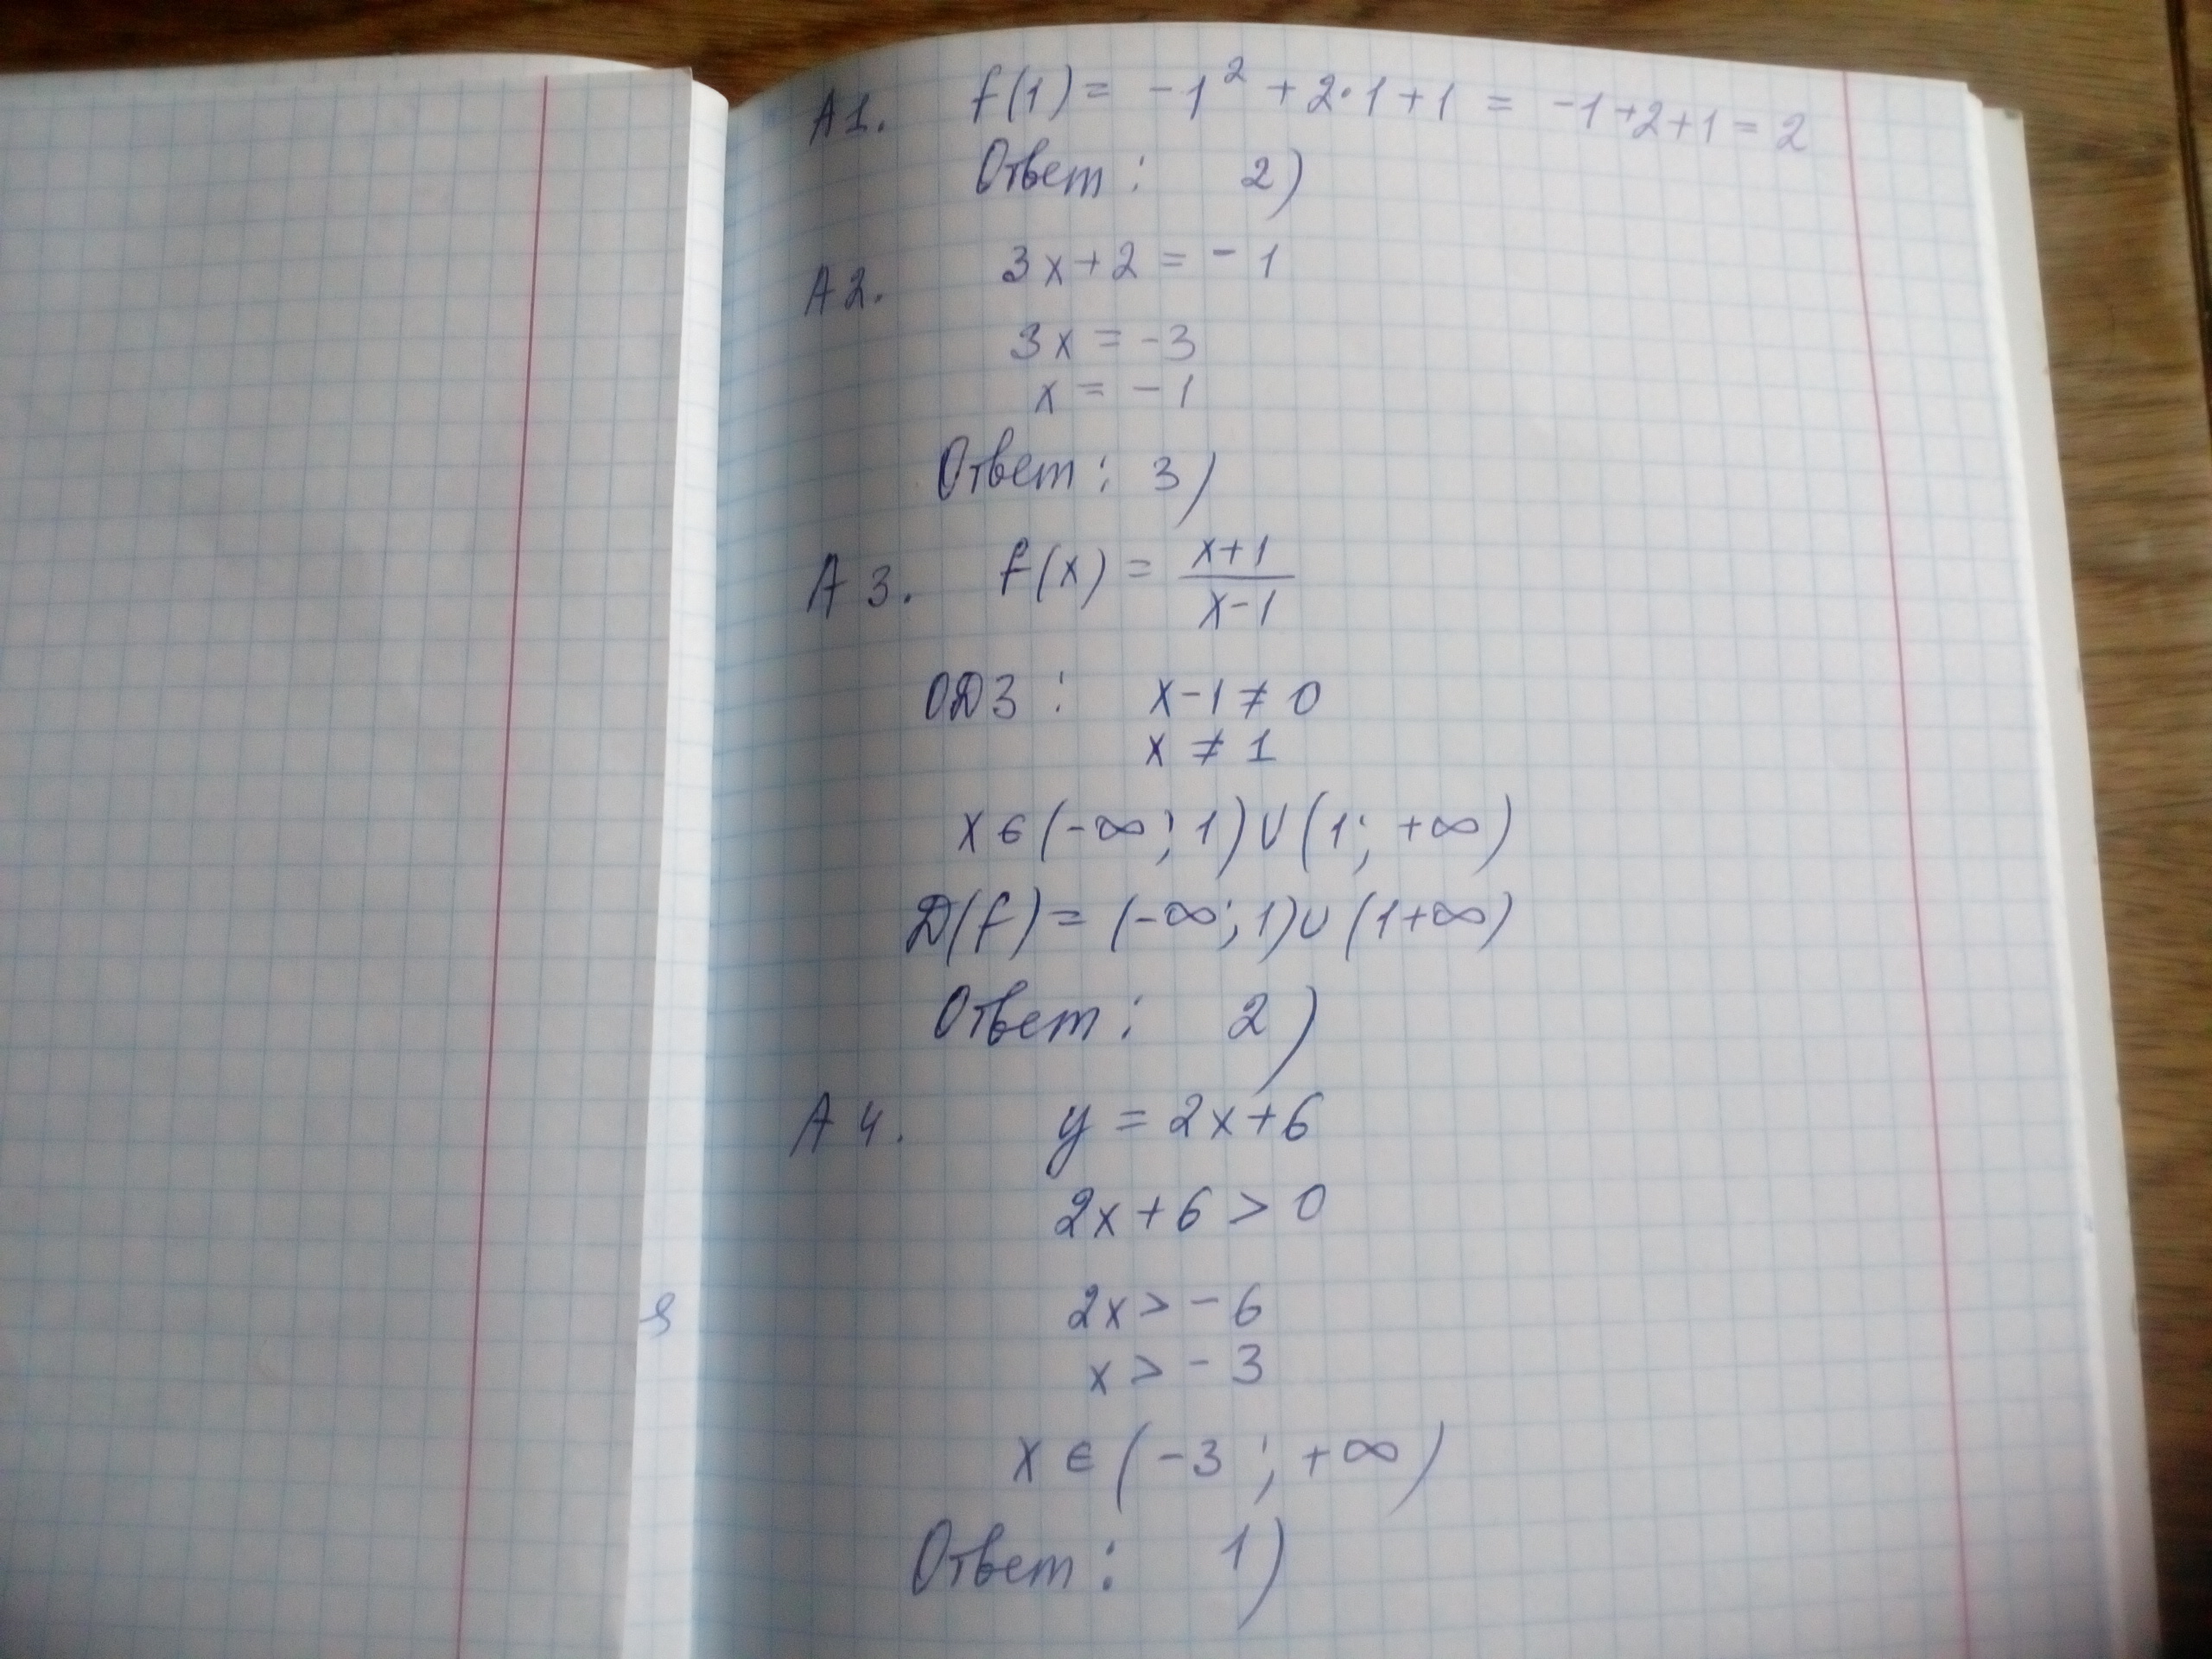 А1. f(1) = -1² + 2·1+1 = -1+2+1=2
Ответ: 2)
А2. 3x+2 = -1
3x = -3
x = -1
Ответ: 3)
А3. f(x) = (x+1)/(x-1)
ОДЗ: x-1 ≠ 0
x ≠ 1
x ∈ (-∞; 1) ∪ (1; +∞)
D(f) = (-∞; 1) ∪ (1+∞)
Ответ: 2)
А4. y = 2x+6
2x+6 > 0
2x > -6
x > -3
x ∈ (-3; +∞)
Ответ: 1)